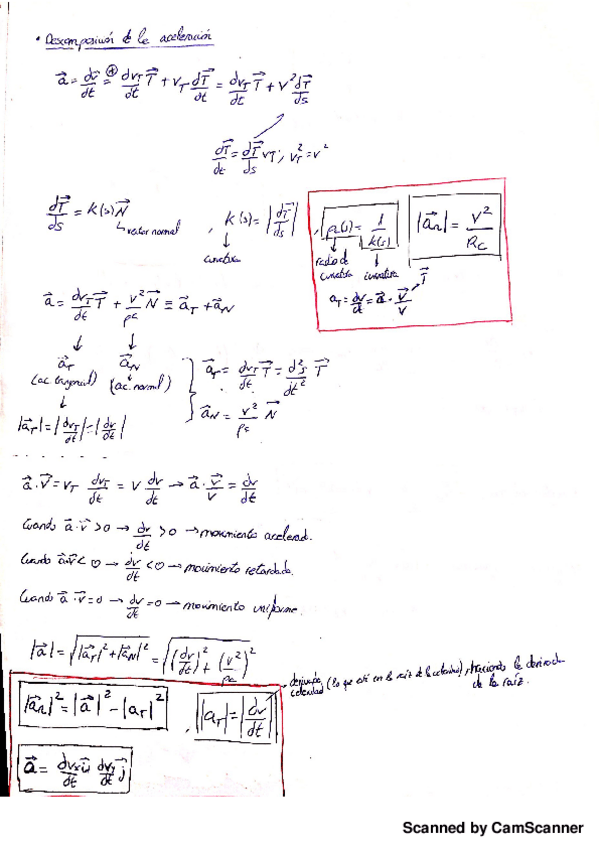 • Descomposición de la aceleración
\vec{a} = \frac{d\vec{v}}{dt} \overset{(*)}{=} \frac{dv_T}{dt} \vec{T} + v_T \frac{d\vec{T}}{dt} = \frac{dv_T}{dt} \vec{T} + v^2 \frac{d\vec{T}}{ds}
\frac{d\vec{T}}{dt} = \frac{d\vec{T}}{ds} v_T, v_T^2 = v^2
\frac{d\vec{T}}{ds} = k(s) \vec{N} , k(s) = |\frac{d\vec{T}}{ds}| , ρ_c(s) = \frac{1}{k(s)} |\vec{a_n}| = \frac{v^2}{R_c}
↳ vector normal ↓ curvatura radio de curvatura curvatura
a_T = \frac{dv}{dt} = \vec{a} · \frac{\vec{v}}{v} → \vec{T}
\vec{a} = \frac{dv_T}{dt} \vec{T} + \frac{v^2}{ρ_c} \vec{N} ≡ \vec{a}_T + \vec{a}_N
↓ ↓
\vec{a}_T \vec{a}_N
(ac. tangencial) (ac. normal)
\vec{a}_T = \frac{dv_T}{dt} \vec{T} = \frac{d^2s}{dt^2} \vec{T}
\vec{a}_N = \frac{v^2}{ρ_c} \vec{N}
|\vec{a}_T| = |\frac{dv_T}{dt}| = |\frac{dv}{dt}|
\vec{a} · \vec{v} = v_T \frac{dv_T}{dt} = v \frac{dv}{dt} → \vec{a} · \frac{\vec{v}}{v} = \frac{dv}{dt}
Cuando \vec{a} · \vec{v} > 0 → \frac{dv}{dt} > 0 → movimiento acelerad.
Cuando \vec{a} · \vec{v} < 0 → \frac{dv}{dt} < 0 → movimiento retardado.
Cuando \vec{a} · \vec{v} = 0 → \frac{dv}{dt} = 0 → movimiento uniforme.
|\vec{a}| = \sqrt{|\vec{a}_T|^2 + |\vec{a}_N|^2} = \sqrt{(\frac{dv}{dt})^2 + (\frac{v^2}{ρ_c})^2}
derivada (lo que está en la raíz de la), haciendo la derivada
de la raíz.
|\vec{a}_n|^2 = |\vec{a}|^2 - |a_T|^2 , |a_T| = |\frac{dv}{dt}|
\vec{a} = \frac{dv_x}{dt} \vec{i} \frac{dv_y}{dt} \vec{j}
Scanned by CamScanner